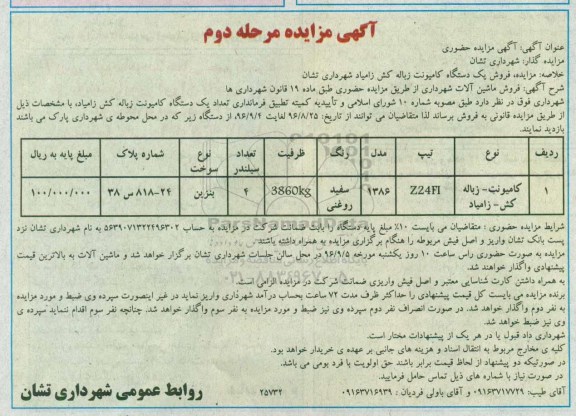 آگهی مزایده مرحله دوم
عنوان آگهی: آگهی مزایده حضوری
مزایده گذار: شهرداری تشان
خلاصه: مزایده، فروش یک دستگاه کامیونت زباله کش زامیاد شهرداری تشان
شرح آگهی: فروش ماشین آلات شهرداری از طریق مزایده حضوری طبق ماده ۱۹ قانون شهرداری ها
شهرداری فوق در نظر دارد طبق مصوبه شماره ۱۰ شورای اسلامی و تأییدیه کمیته تطبیق فرمانداری تعداد یک دستگاه کامیونت زباله کش زامیاد، با مشخصات ذیل
از طریق مزایده قانونی به فروش برساند لذا متقاضیان می توانند از تاریخ: ۹۶/۸/۲۵ لغایت ۹۶/۹/۴، از دستگاه زیر که در محل محوطه ی شهرداری پارک می باشند
بازدید نمایند.
ردیف نوع تیپ مدل رنگ ظرفیت تعداد سیلندر نوع سوخت شماره پلاک مبلغ پایه به ریال
۱ کامیونت- زباله کش- زامیاد Z24FI ۱۳۸۶ سفید روغنی 3860kg ۴ بنزین ۲۴-۸۱۸ س ۳۸ ۱۰۰/۰۰۰/۰۰۰
شرایط مزایده حضوری : متقاضیان می بایست ۱۰٪ مبلغ پایه دستگاه را بابت ضمانت شرکت در مزایده به حساب ۵۶۳۹۰۷۱۳۲۲۴۹۶۳۰۲ به نام شهرداری تشان نزد
پست بانک تشان واریز و اصل فیش مربوطه را هنگام برگزاری مزایده به همراه داشته باشند.
مزایده به صورت حضوری راس ساعت ۱۰ روز یکشنبه مورخه ۹۶/۹/۵ در محل سالن جلسات شهرداری تشان برگزار خواهد شد و ماشین آلات به بالاترین قیمت
پیشنهادی واگذار خواهند شد.
به همراه داشتن کارت شناسایی معتبر و اصل فیش واریزی ضمانت شرکت در مزایده الزامی است.
برنده مزایده می بایست کل قیمت پیشنهادی را حداکثر ظرف مدت ۷۲ ساعت بحساب درآمد شهرداری واریز نماید در غیر اینصورت سپرده وی ضبط و مورد مزایده
به نفر دوم واگذار خواهد شد. در صورت انصراف نفر دوم سپرده وی نیز ضبط و مورد مزایده به نفر سوم واگذار خواهد شد. چنانچه نفر سوم اقدام ننماید سپرده ی
وی نیز ضبط خواهد شد.
شهرداری داد قبول یا در هر یک از پیشنهادات مختار است.
کلیه ی مخارج مربوط به انتقال اسناد و هزینه های جانبی بر عهده ی خریدار خواهد بود.
در صورتیکه دو پیشنهاد از لحاظ قیمت برابر باشند حق اولویت با فرد بومی می باشد.
در صورت نیاز با شماره های ذیل تماس حاصل فرمایید.
آقای طیب: ۰۹۱۶۳۷۱۷۷۲۹ و آقای باولی فردیان : ۰۹۱۶۳۷۱۶۹۳۹
۲۵۷۳۴
روابط عمومی شهرداری تشان
ParsNamadData